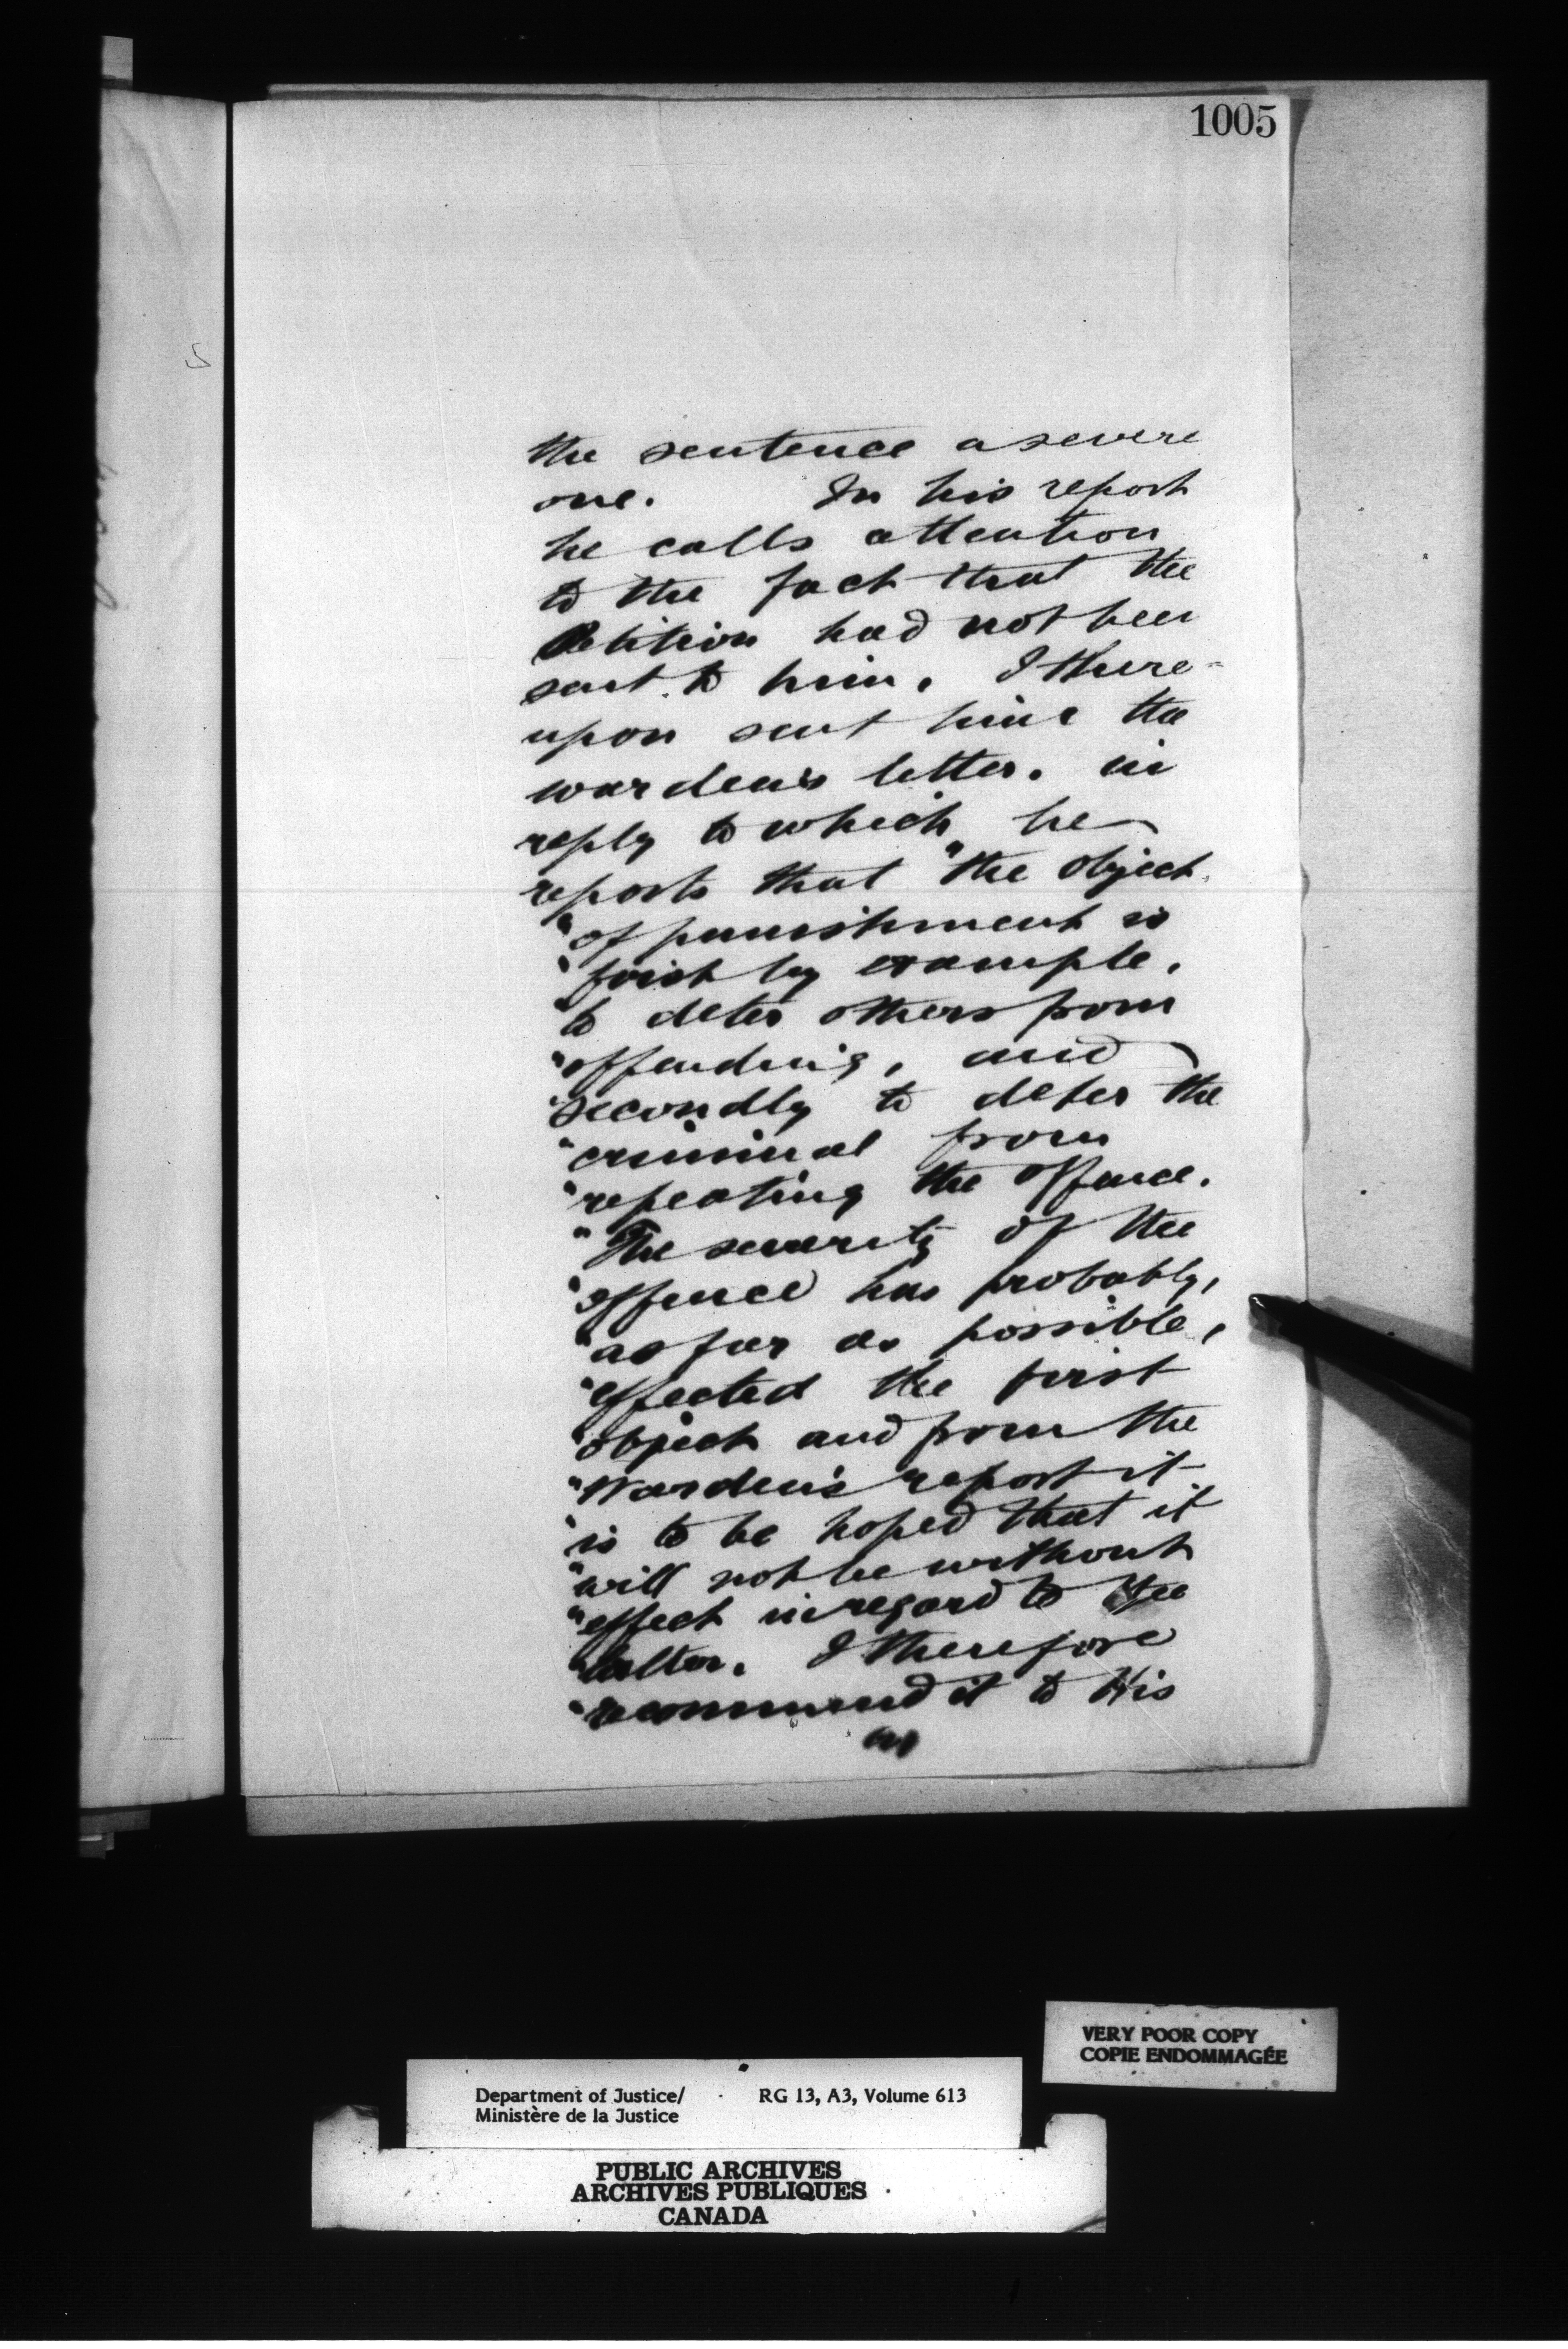 1005
the sentence a severe
one. In his report
he calls attention
to the fact that the
Petition had not been
sent to him. I there-
upon sent him the
warden's letter. in
reply to which he
reports that "the object
"of punishment is
"first by example,
"to deter others from
"offending, and
"secondly to deter the
"criminal from
"repeating the offence.
"The severity of the
"offence has probably,
"as far as possible,
"effected the first
"object and from the
"Warden's report it
"is to be hoped that it
"will not be without
"effect in regard to the
"latter. I therefore
"recommend it to His
VERY POOR COPY
COPIE ENDOMMAGÉE
Department of Justice/ RG 13, A3, Volume 613
Ministère de la Justice
PUBLIC ARCHIVES
ARCHIVES PUBLIQUES
CANADA